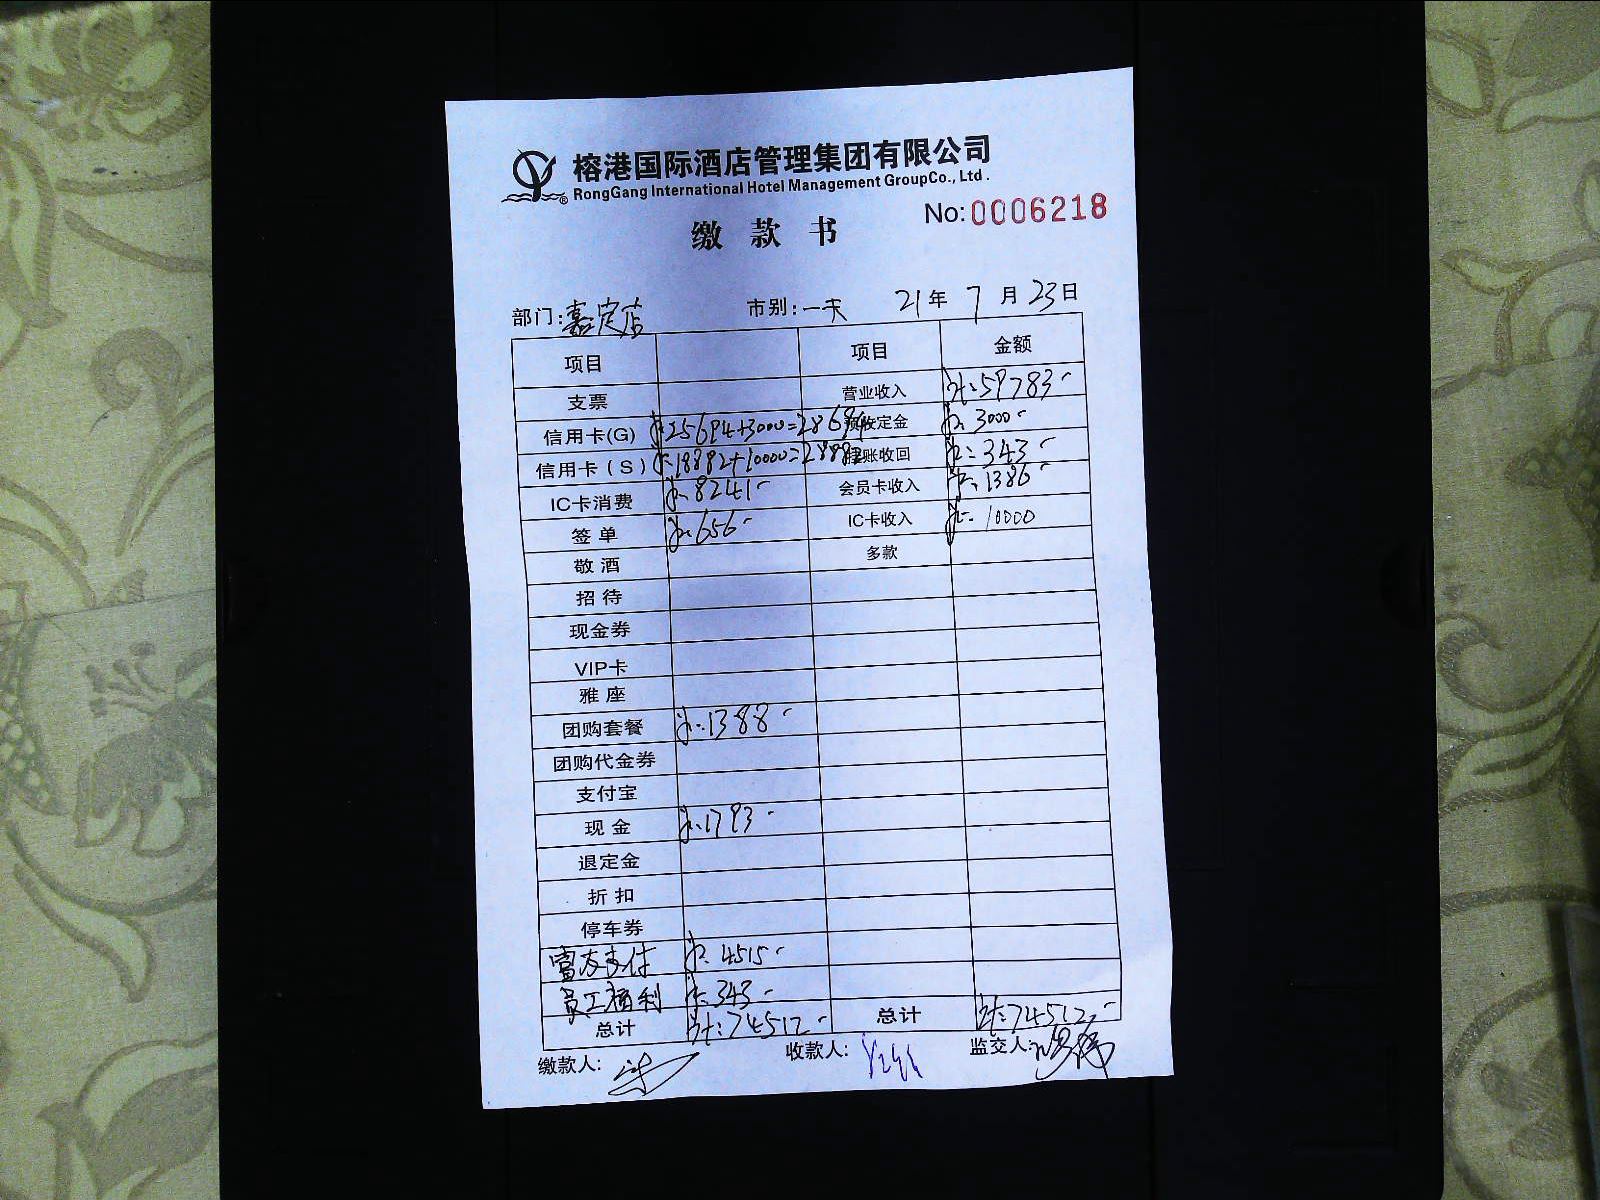 榕港国际酒店管理集团有限公司
RongGang International Hotel Management GroupCo., Ltd.
No:0006218
缴款书
部门:嘉定店 市别:一天 21年7月23日
项目 项目 金额
支票 营业收入 计:59783
信用卡(G) 25694+3000=28694 预收定金 3000
信用卡(S) 18882+10000=28882 挂账收回 343
IC卡消费 8241 会员卡收入 1386
签单 656 IC卡收入 10000
敬酒 多款
招待
现金券
VIP卡
雅座
团购套餐 1388
团购代金券
支付宝
现金 1793
退定金
折扣
停车券
富友支付 4515
员工福利 343
总计 计:74512 总计 计:74512
缴款人: 收款人: 监交人: